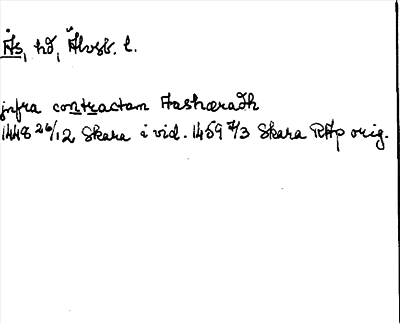 Ås, hd, Älvsb. l.
infra contractam Aashæradh
1448 26/12 Skara i vid. 1459 7/3 Skara RAp orig.